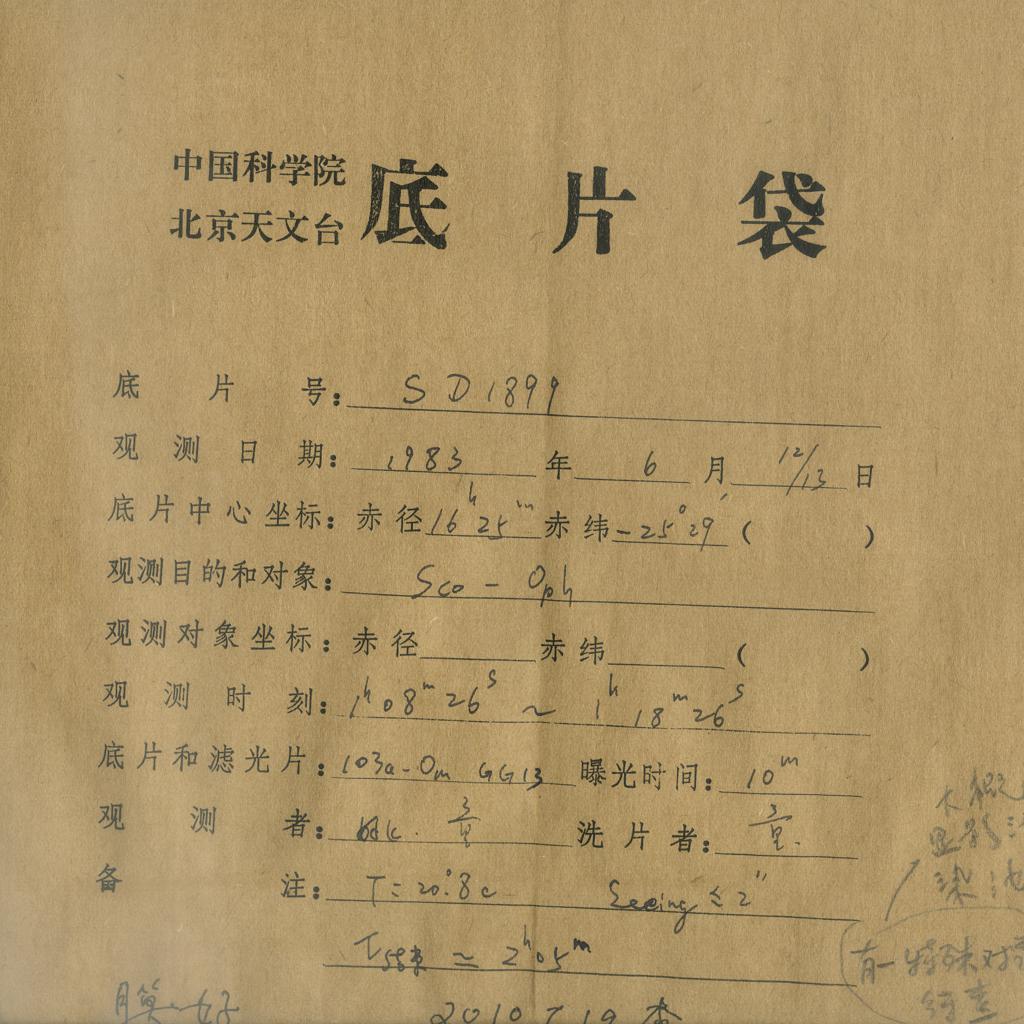 中国科学院
北京天文台 底片袋
底片号: SD1899
观测日期: 1983年 6月 12/13日
底片中心坐标: 赤径 16h 25m 赤纬 -25°29′ ( )
观测目的和对象: Sco - Oph
观测对象坐标: 赤径 赤纬 ( )
观测时刻: 1h 08m 26s ~ 1h 18m 26s
底片和滤光片: 103a-Om GG13 曝光时间: 10m
观测者: 洗片者:
备注: T = 20°.8c Seeing ≤ 2″
T结束 ≃ 2h05m
膜·好 2010 7 19 李
大概
显影
染
有一特殊对